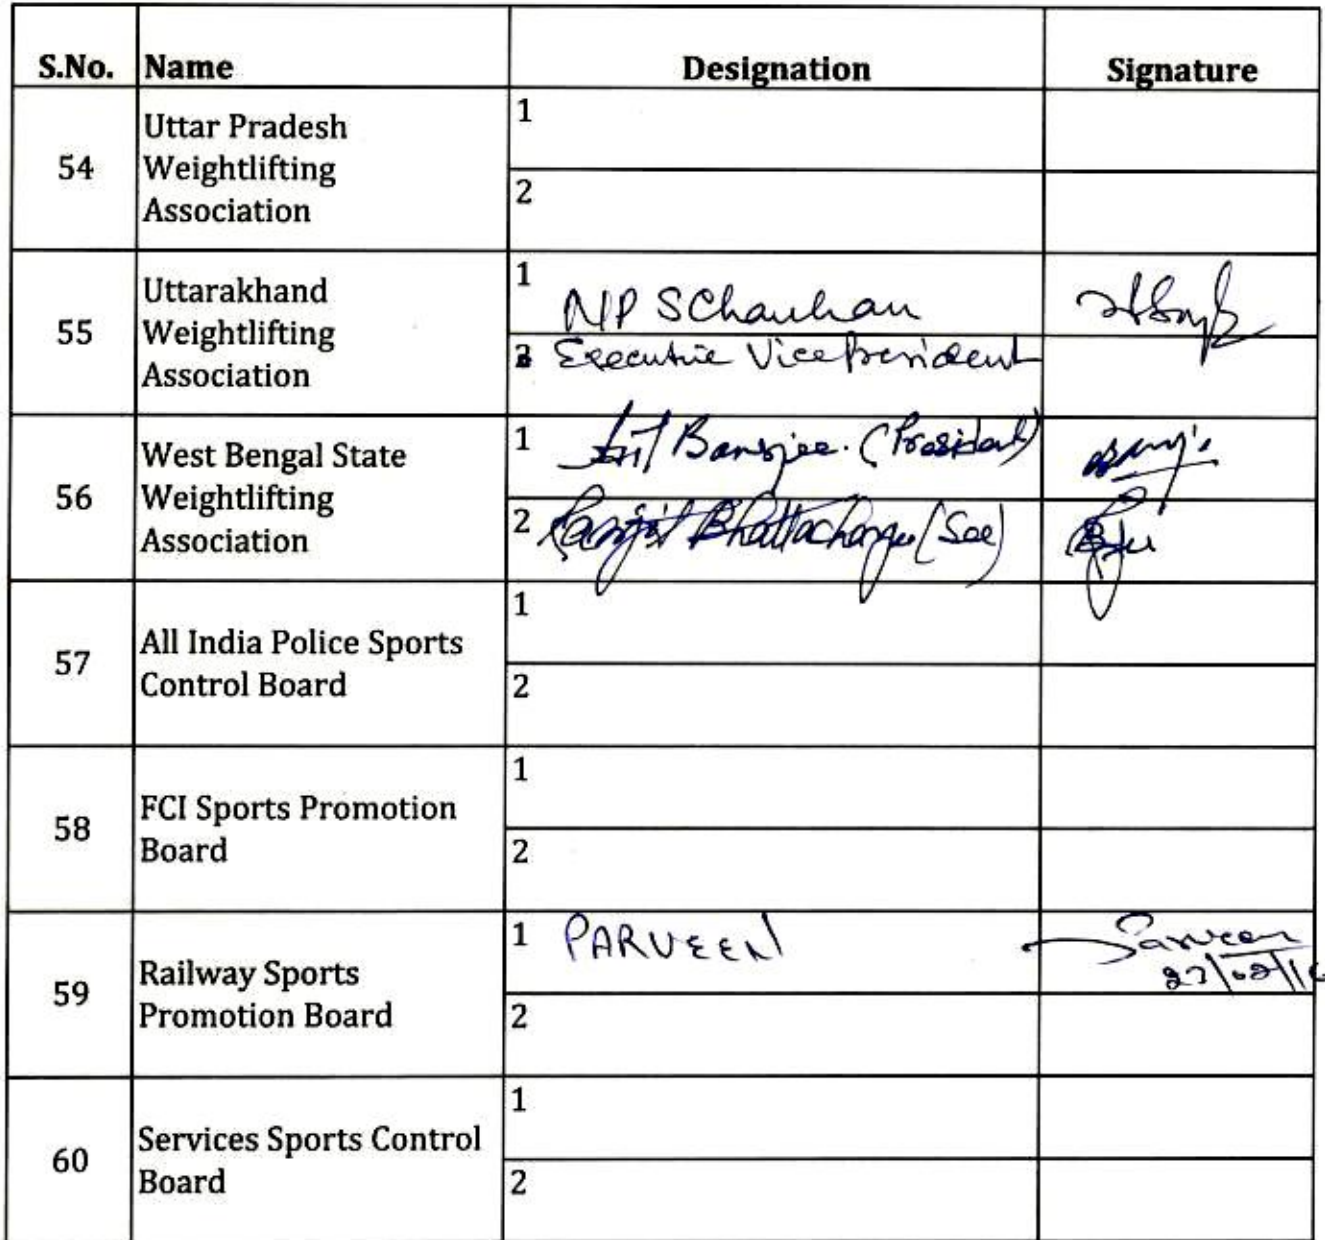 S.No. Name Designation Signature
54
Uttar Pradesh
Weightlifting
Association
1
2
55
Uttarakhand
Weightlifting
Association
1 NPS Chauhan
2 Executive Vice President
56
West Bengal State
Weightlifting
Association
1 Banerjee. (President)
2 Ranjit Bhattacharya (Sec)
57
All India Police Sports
Control Board
1
2
58
FCI Sports Promotion
Board
1
2
59
Railway Sports
Promotion Board
1 PARVEEN Parveen
2
60
Services Sports Control
Board
1
2